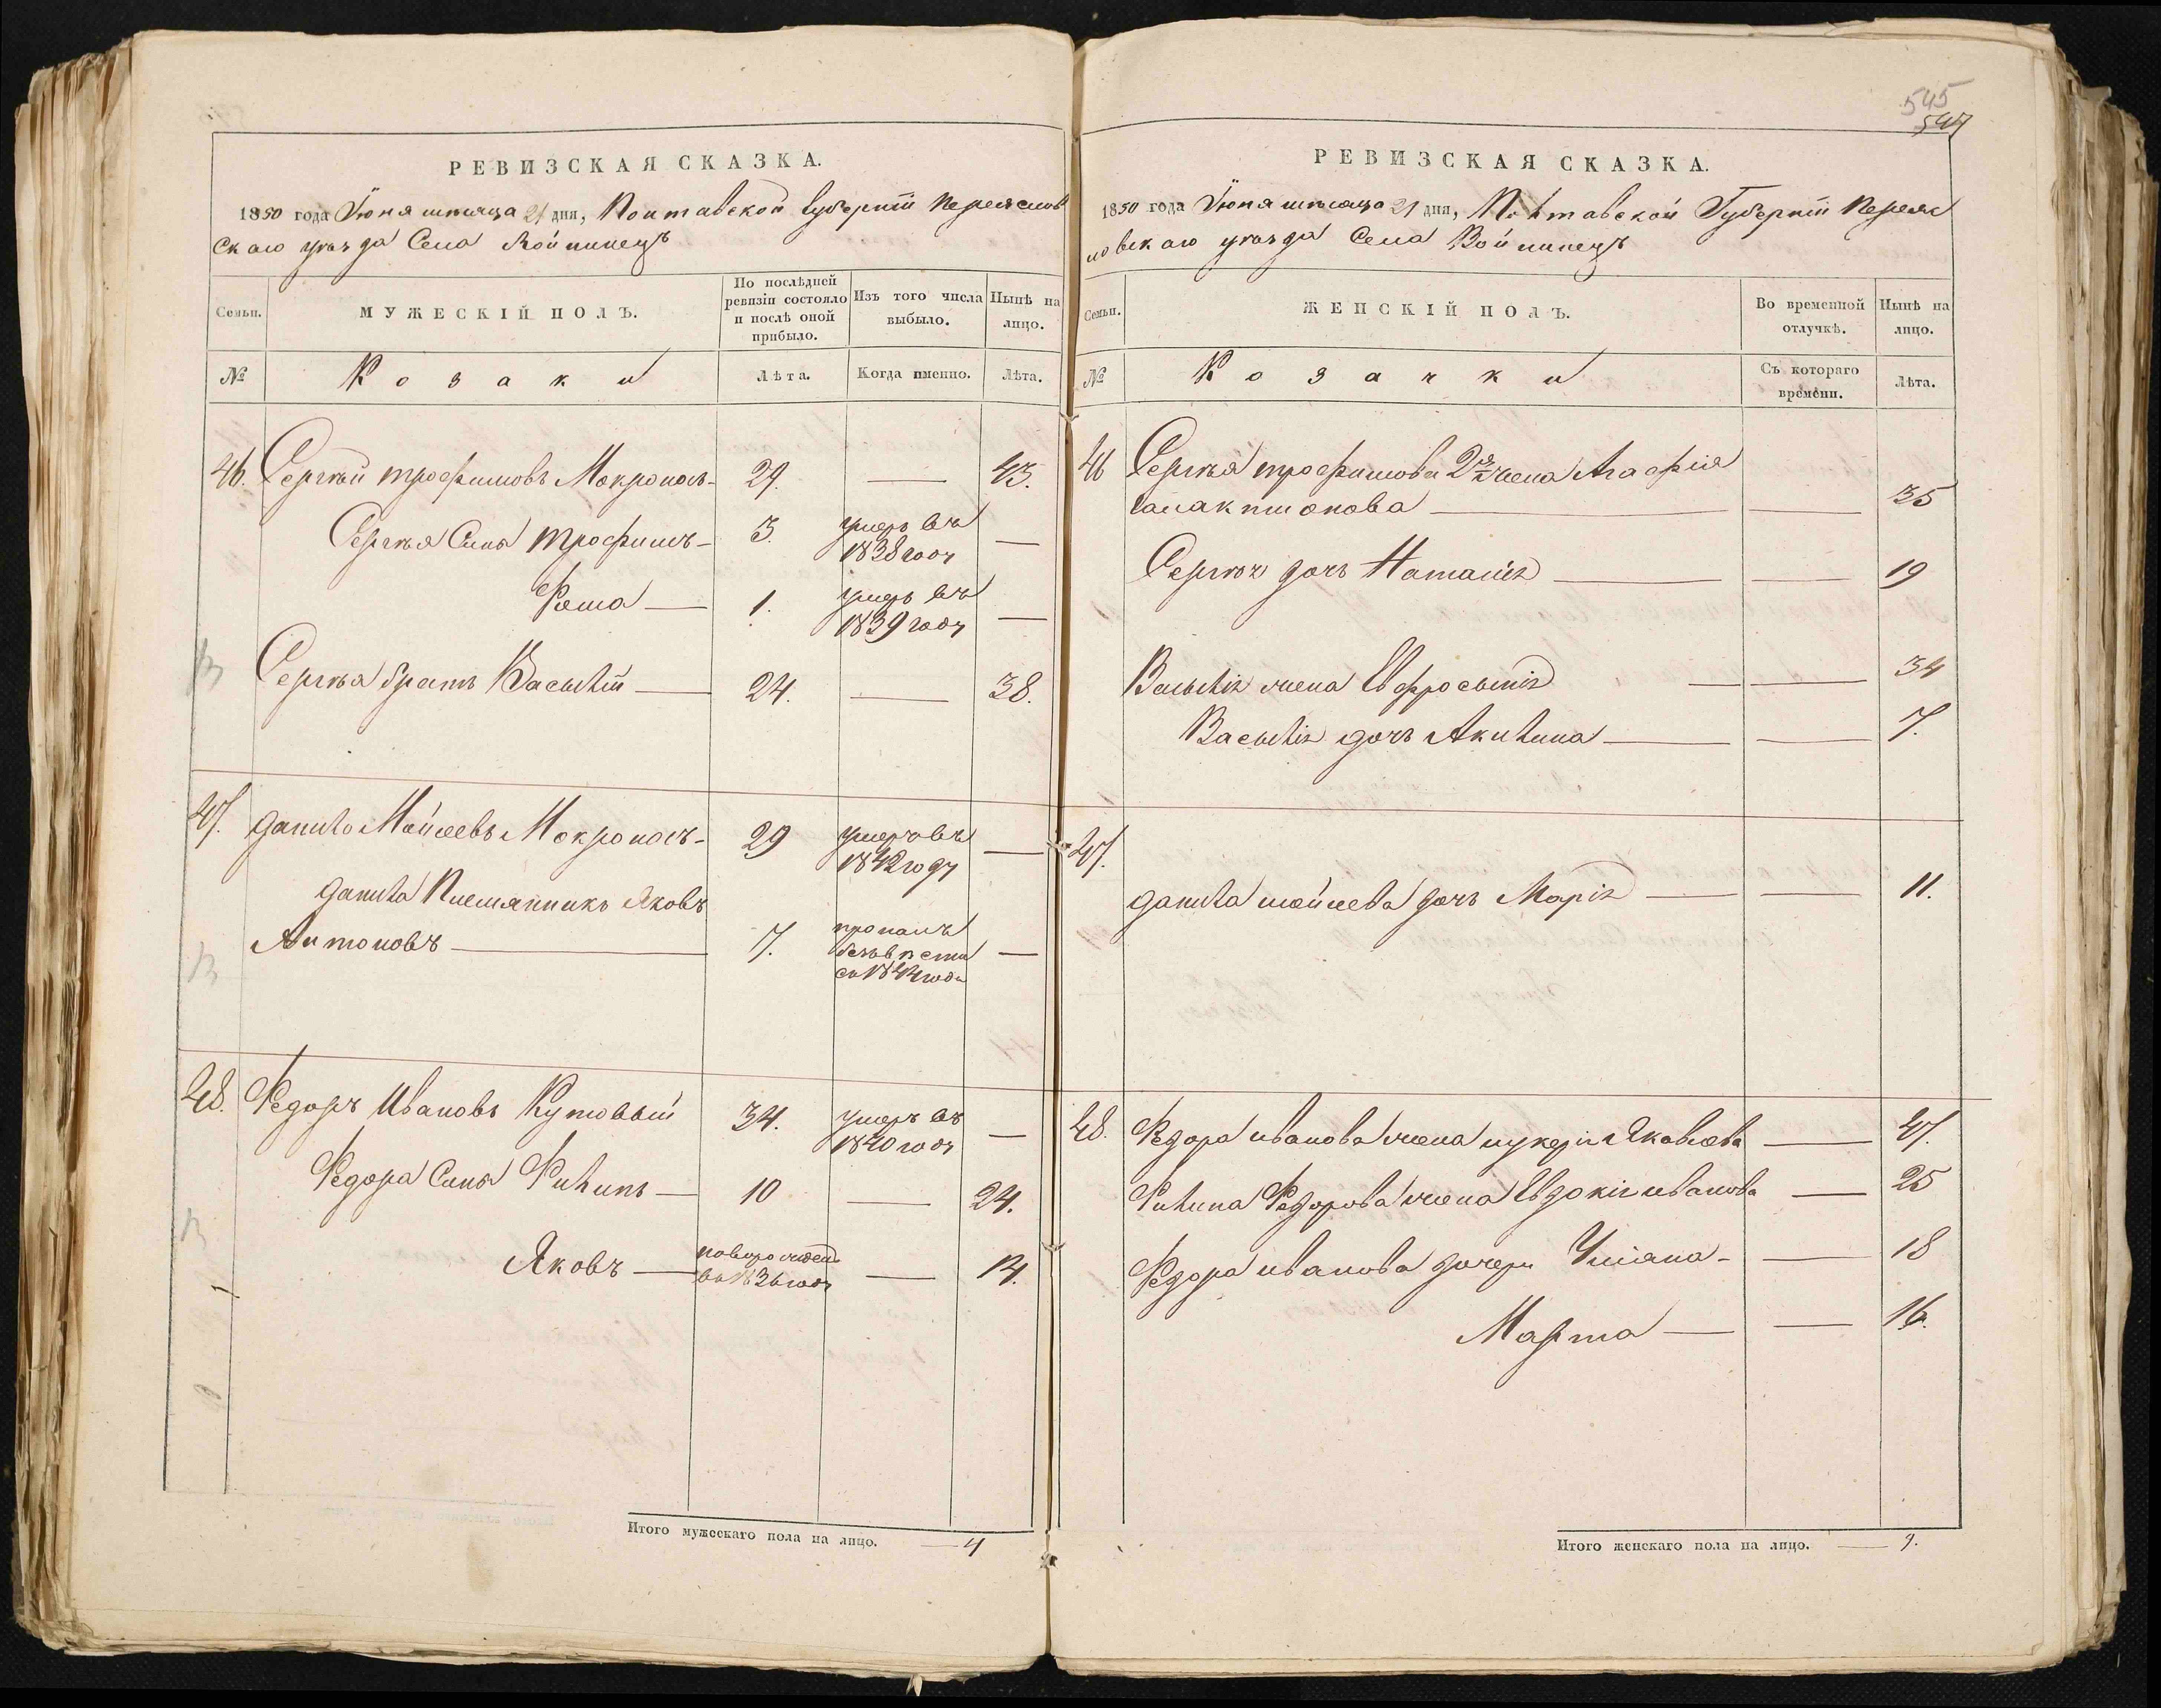 РЕВИЗСКАЯ СКАЗКА.
1850 года Июня месяца 21 дня, Полтавской Губернiи Переяслов
скаго уезда Села Войтинецъ
Семьи.
МУЖЕСКIЙ ПОЛЪ.
По послѣдней ревизiи состояло и послѣ оной прибыло.
Изъ того числа выбыло.
Нынѣ на лицо.
№
Козаки
Лѣта.
Когда именно.
Лѣта.
46. Сергѣй Трофимовъ Мокроносъ 29. — 43.
Сергѣя Сынъ Трофимъ 3. умеръ въ 1838 году —
Фома — 1. умеръ въ 1839 году —
Сергѣя братъ Василiй — 24. — 38.
47. Данило Мойсеевъ Мокроносъ 29 умеръ въ 1842 году —
Данила Племянникъ Яковъ
Антоновъ — 7. пропалъ безъ вести съ 184 года —
48. Федоръ Ивановъ Кутовый 34. умеръ въ 1840 году —
Федора Сынъ Филипъ — 10 — 24.
Яковъ — новорожден въ 1836 году — 14.
Итого мужескаго пола на лицо. — 4
545
547
РЕВИЗСКАЯ СКАЗКА.
1850 года Июня месяца 21 дня, Полтавской Губернiи Переяс
ловскаго уезда Села Войтинецъ
Семьи.
ЖЕНСКIЙ ПОЛЪ.
Во временной отлучкѣ.
Нынѣ на лицо.
№
Козачки
Съ котораго времени.
Лѣта.
46 Сергѣя Трофимова 2я жена Агафiя
Галактионова — — 35
Сергѣя дочь Наталiя — — 19
Василiя жена Евфросынiя — — 34
Василiя дочь Акилина — — 7.
47.
Данила Мойсеева дочь Марiя — — 11.
48. Федора Иванова жена Лукерiя Яковлева — 47.
Филипа Федорова жена Евдокiя Иванова — 25
Федора Иванова дочери Улiяна — — 18
Марта — — 16.
Итого женскаго пола на лицо. — 9.